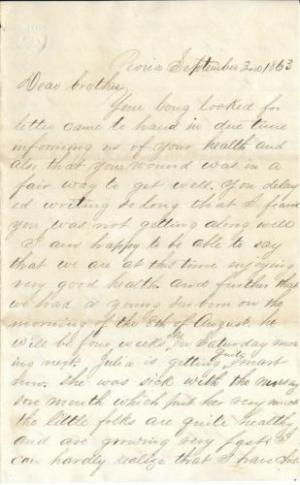 Peoria September 2nd 1863
Dear brother,
Your long looked for
letter came to hand in due time
informing us of your health and
also that your wound was in a
fair way to get well. You delay
ed writing so long that I feared
you was not getting along well
I am happy to be able to say
that we are at this time enjoying
very good health and further that
we had a young Son born on the
morning of the 8th of August. he
will be four weeks old Saturday mor
ning next. Julia is getting quite smart
now. She was sick with the
one month which put her very much
the little folks are quite healthy
and are growing very fast I
can hardly realize that I have